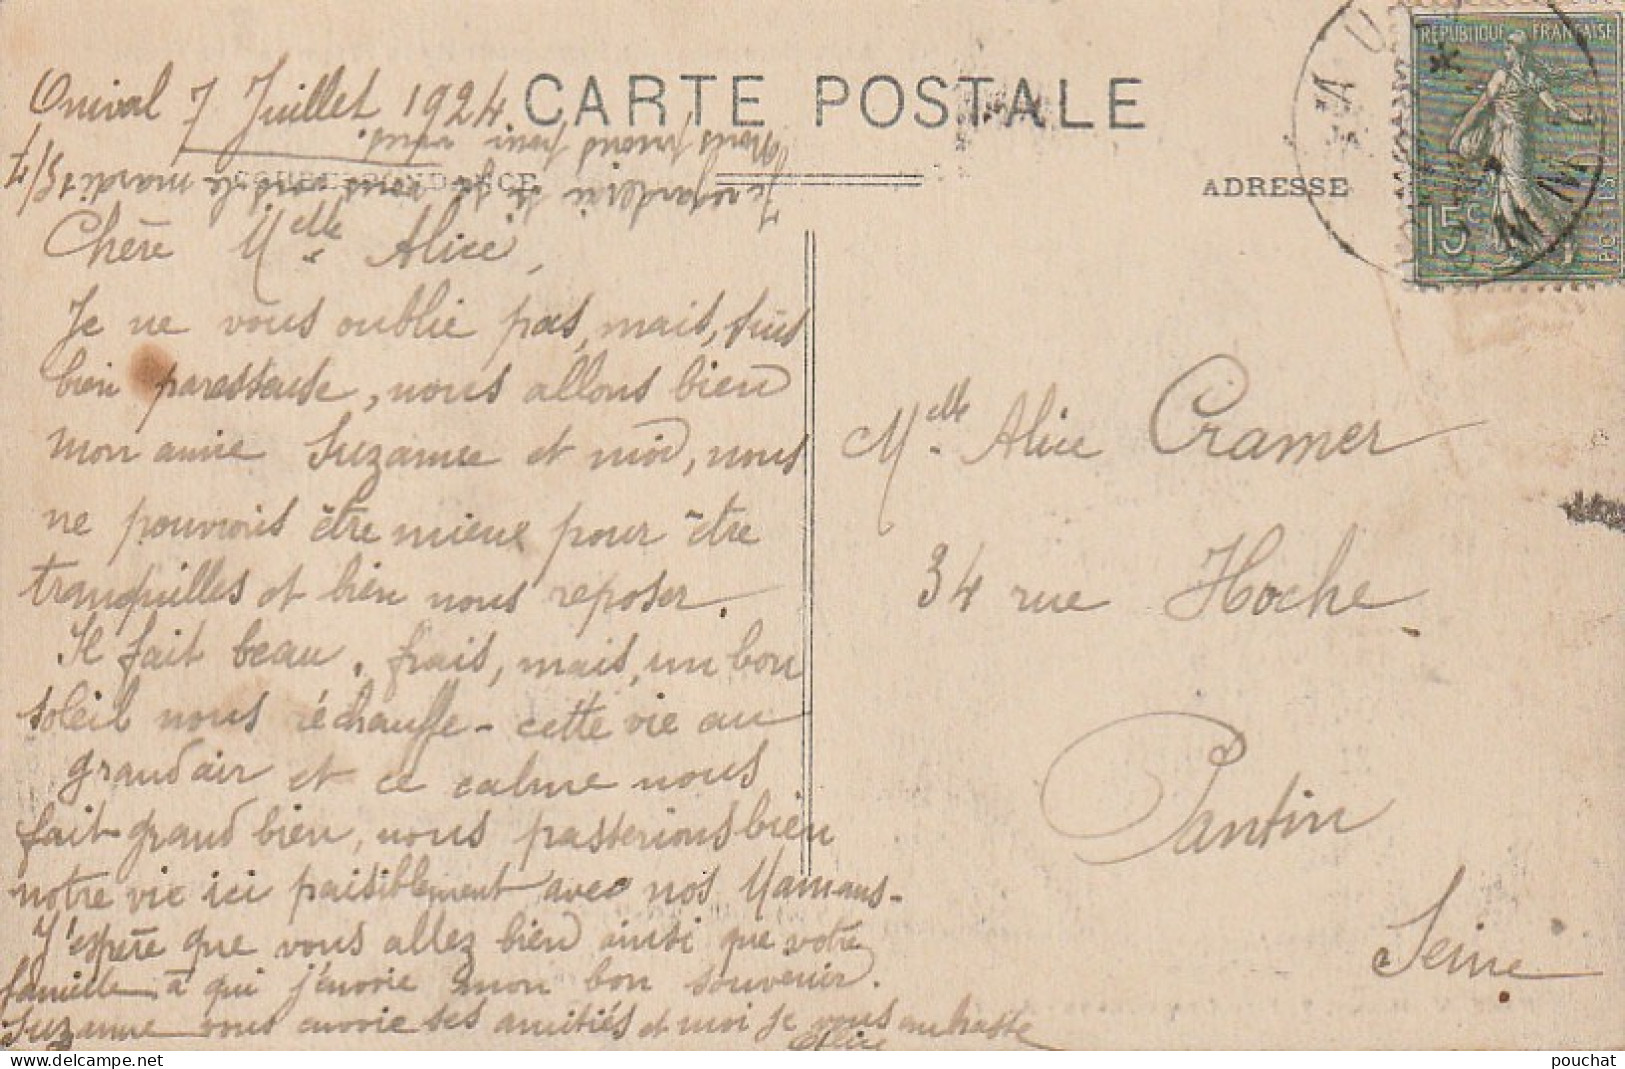 CARTE POSTALE
CORRESPONDANCE
ADRESSE
RÉPUBLIQUE FRANÇAISE
15c
POSTES
Onival 7 Juillet 1924
Chère Melle Alice,
Je ne vous oublie pas, mais, suis
bien paresseuse, nous allons bien
mon amie Suzanne et moi, nous
ne pouvions être mieux pour être
tranquilles et bien nous reposer.
Il fait beau, frais, mais, un bon
soleil nous réchauffe - cette vie au
grand air et ce calme nous
fait grand bien, nous passerions bien
notre vie ici paisiblement avec nos Mamans-
J'espère que vous allez bien ainsi que votre
famille à qui j'envoie mon bon souvenir.
Suzanne vous envoie ses amitiés et moi je vous embrasse
Alice
le mardi 15/7
Nous prions pour vous.
Melle Alice Cramer
34 rue Hoche
Pantin
Seine
pouchat